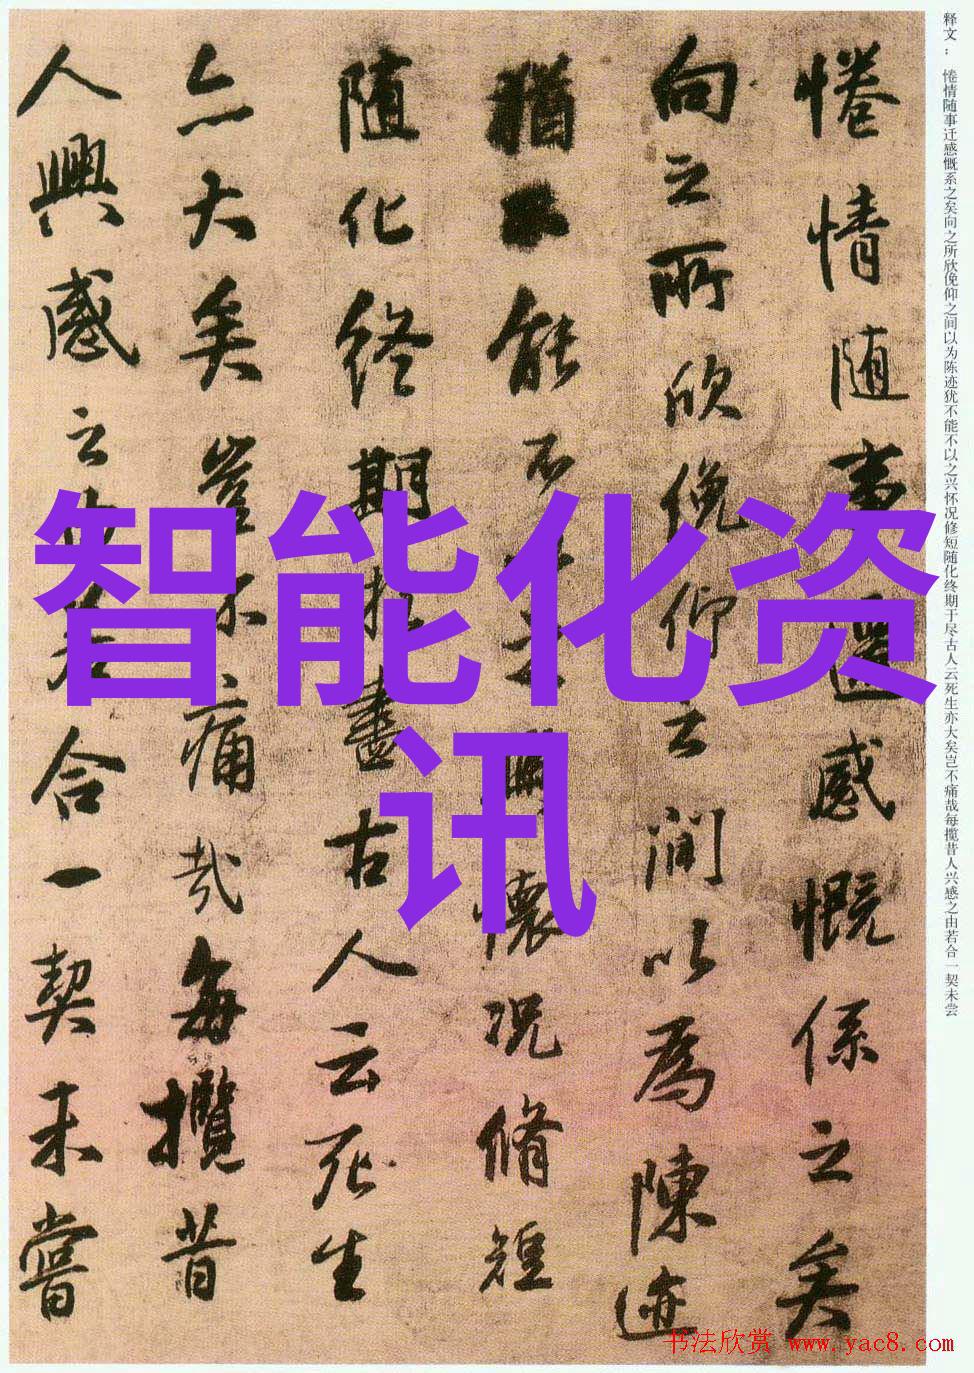 释文：惓情随事迁感慨系之矣向之所欣俛仰之间以为陈迹犹不能不以之兴怀况修短随化终期于尽古人云死生亦大矣岂不痛哉每揽昔人兴感之由若合一契未尝
惓情随事遷感慨係之矣
向之所欣俛仰之間以為陳迹
猶不能不以之興懷況脩短
随化終期於盡古人云死生
亦大矣豈不痛哉每攬昔
人興感之由若合一契未嘗
智能化资
讯
书法欣赏 www.yac8.com